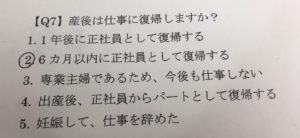 【Q7】産後は仕事に復帰しますか？
1. 1年後に正社員として復帰する
② 6カ月以内に正社員として復帰する
3. 専業主婦であるため、今後も仕事しない
4. 出産後、正社員からパートとして復帰する
5. 妊娠して、仕事を辞めた